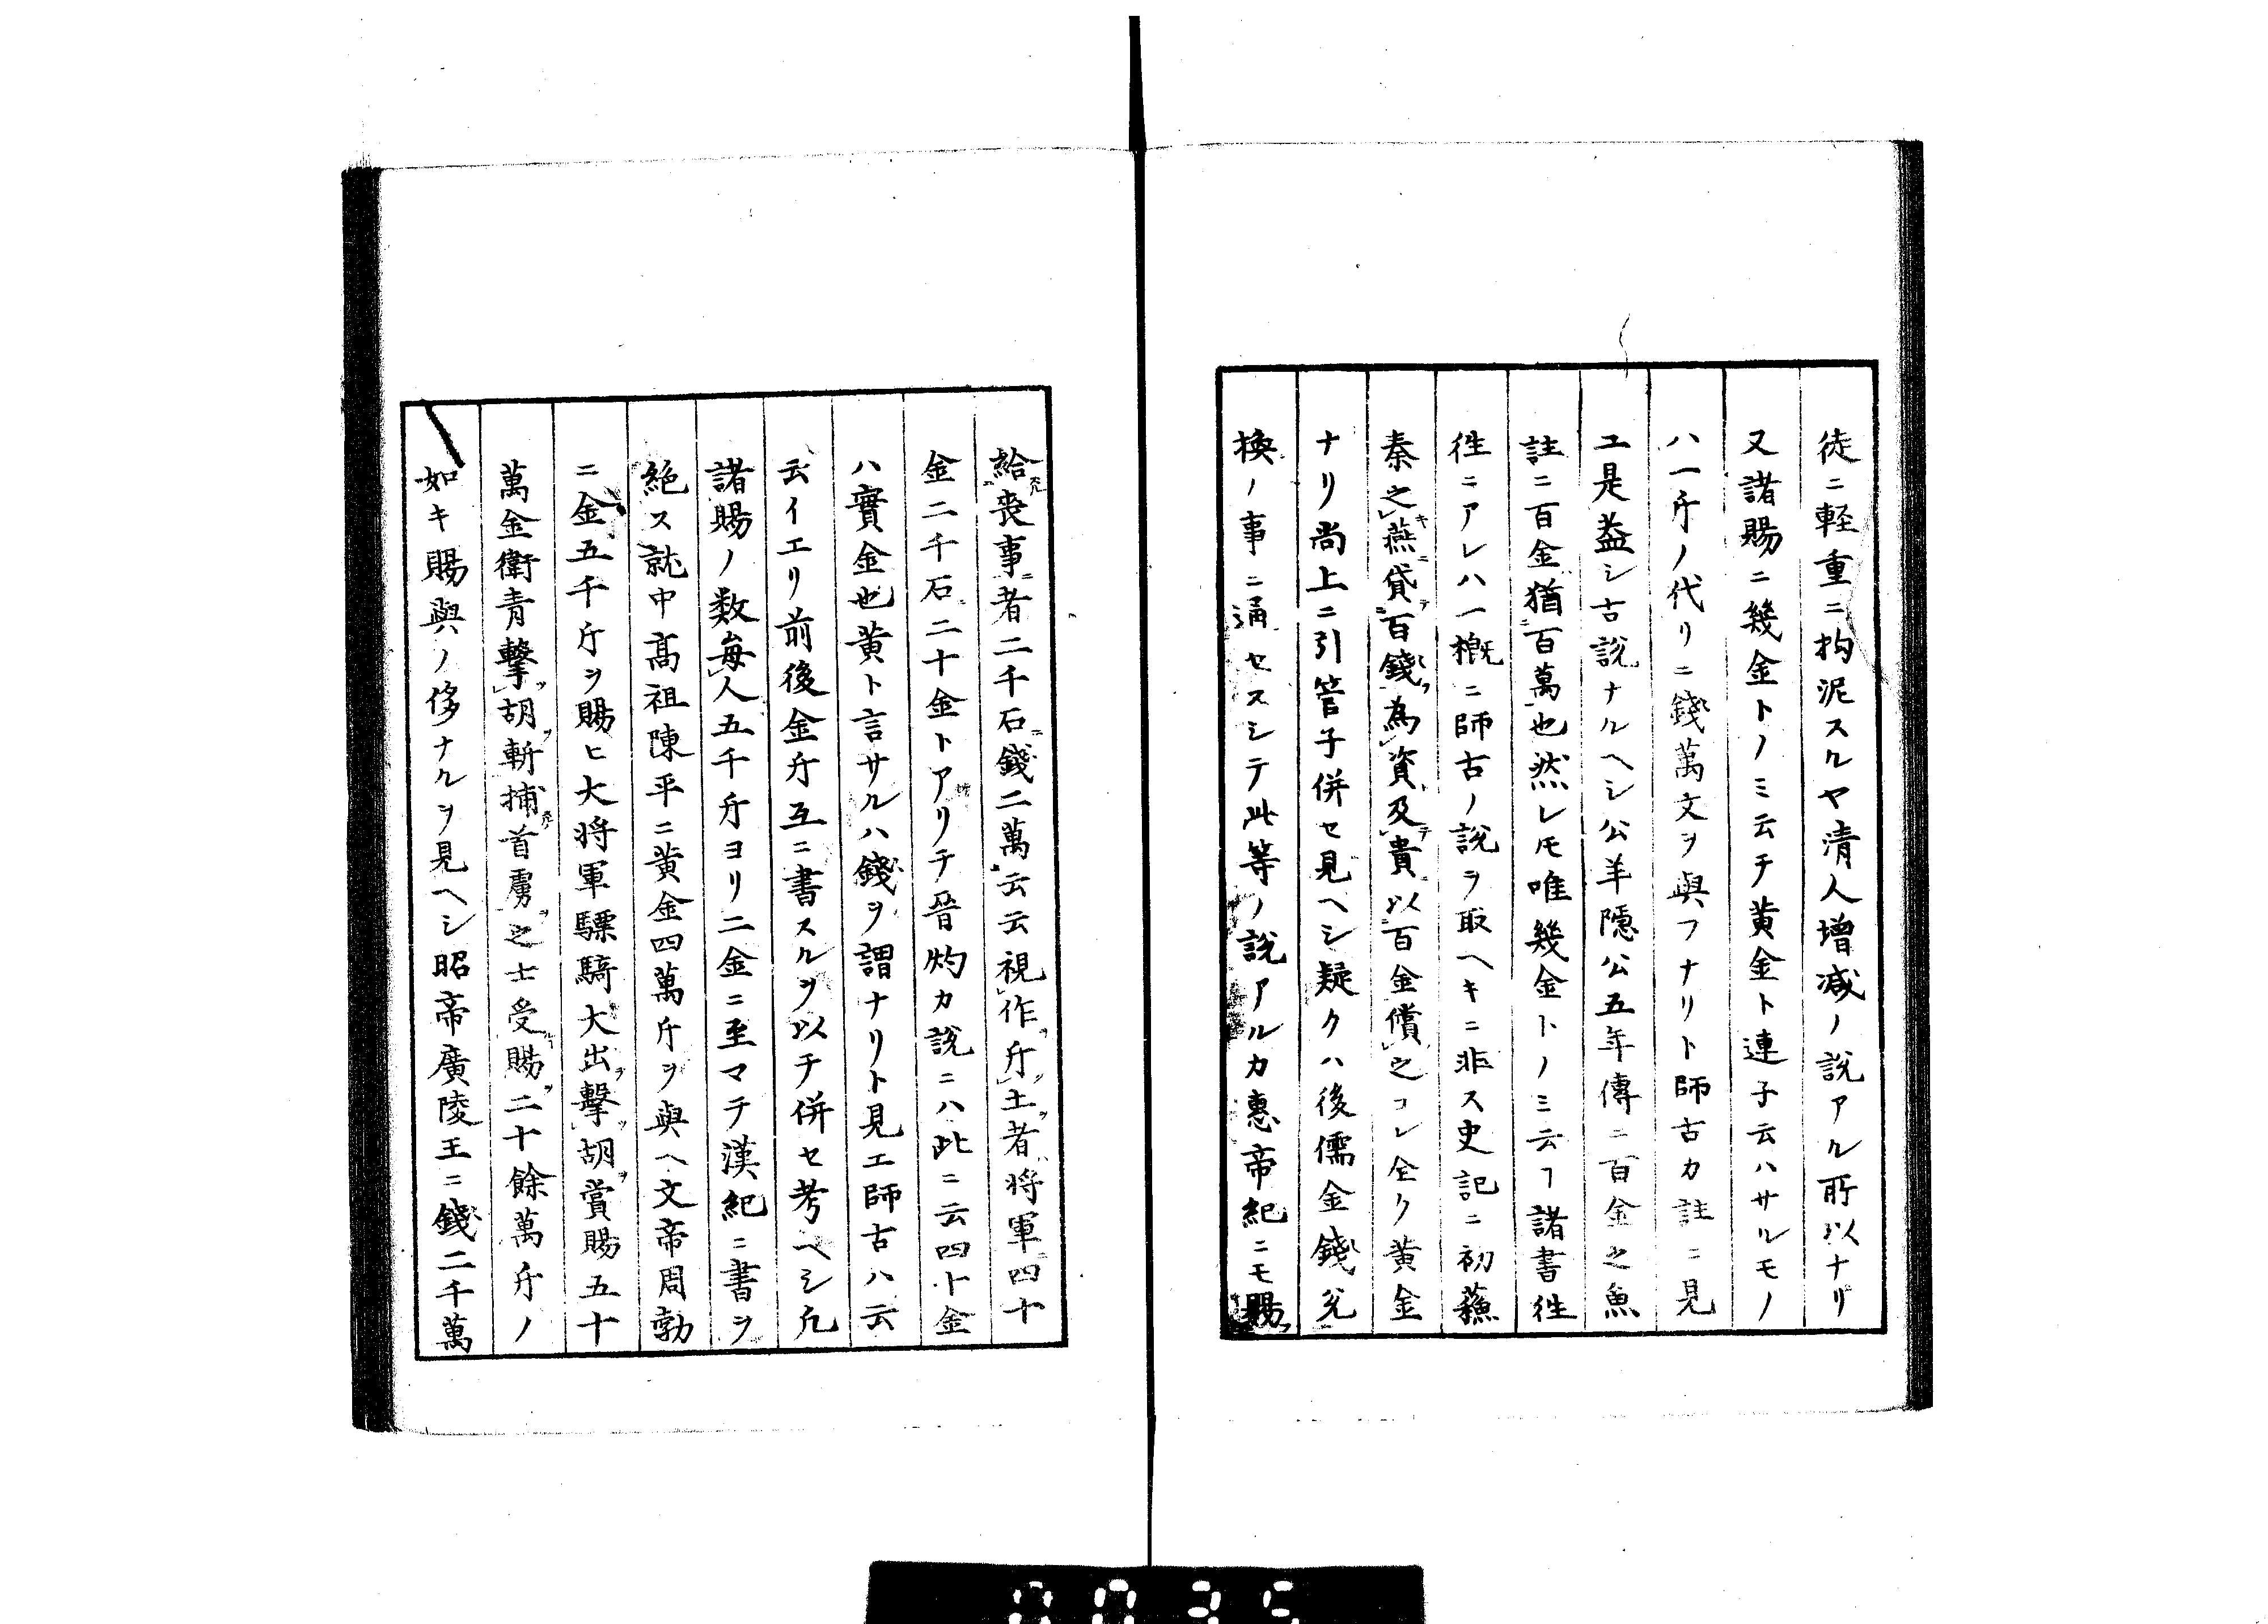 徒ニ軽重ニ拘泥スルヤ清人増減ノ說アル所以ナリ
又諸賜ニ幾金トノミ云チ黄金ト連子云ハサルモノ
ハ一斤ノ代リニ錢萬文ヲ與フナリト師古カ註ニ見
エ是益シ古説ナルヘシ公羊隱公五年傳ニ百金之魚
註ニ百金猶百萬也然レモ唯幾金トノミ云フ諸書徃
徃ニアレハ一概ニ師古ノ說ヲ取ヘキニ非ス史記ニ初蘓
秦之燕貸百錢為資及貴以百金償之コレ全ク黄金
ナリ尚上ニ引管子併セ見ヘシ疑クハ後儒金錢兌
換ノ事ニ通セスシテ此等ノ說アルカ惠帝紀ニモ賜
給喪事者二千石錢二萬云云視作斤土者将軍四十
金二千石二十金トアリチ晉灼カ說ニハ此ニ云四十金
ハ實金也黄ト言サルハ錢ヲ謂ナリト見エ師古ハ云
云イエリ前後金斤互ニ書スルヲ以チ併セ考ヘシ凢
諸賜ノ数毎人五千斤ヨリ二金ニ至マテ漢紀ニ書ヲ
絶ス就中髙祖陳平ニ黄金四萬斤ヲ與ヘ文帝周勃
ニ金五千斤ヲ賜ヒ大将軍驃騎大出擊胡賞賜五十
萬金衛青擊胡斬捕首虜之士受賜二十餘萬斤ノ
如キ賜與ノ侈ナルヲ見ヘシ昭帝廣陵王ニ錢二千萬